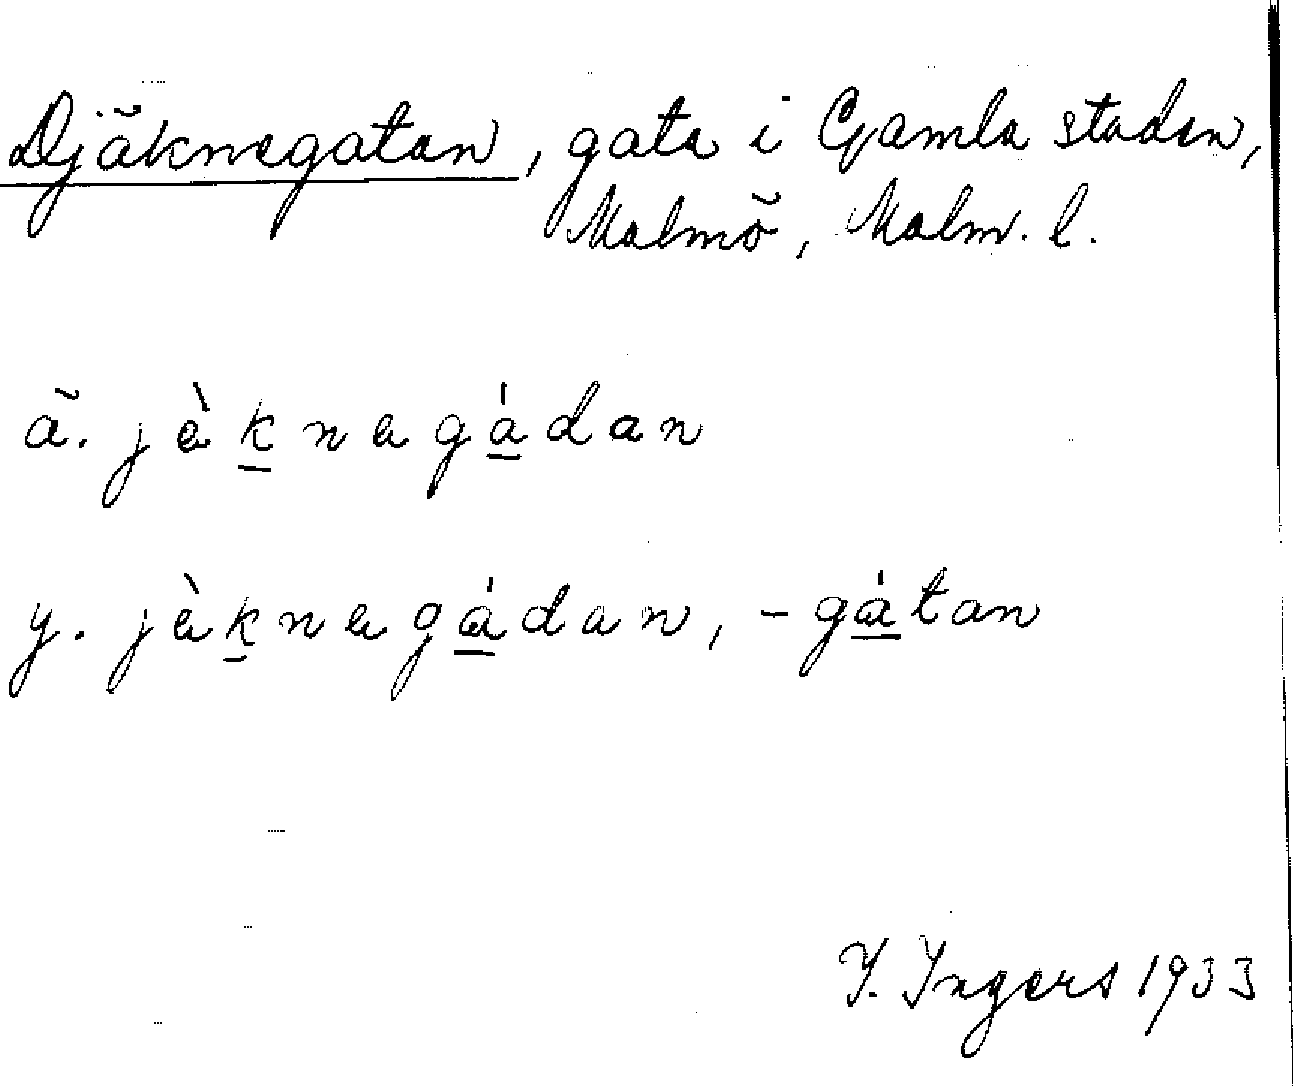 Djäknegatan, gata i Gamla staden,
Malmö, Malm. l.
ä. jàknagádan
y. jàknagádan, -gátan
I. Ingers 1933